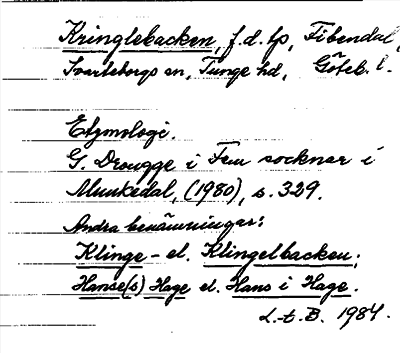 Kringlebacken, f.d. tp, Fibendal,
Svarteborgs sn, Tunge hd, Göteb. l.
Etymologi.
G. Drougge i Fem socknar i
Munkedal, (1980), s. 329.
Andra benämningar:
Klinge- el. Klingelbacken;
Hanse(s) Hage el. Hans i Hage.
L.t.B. 1984.